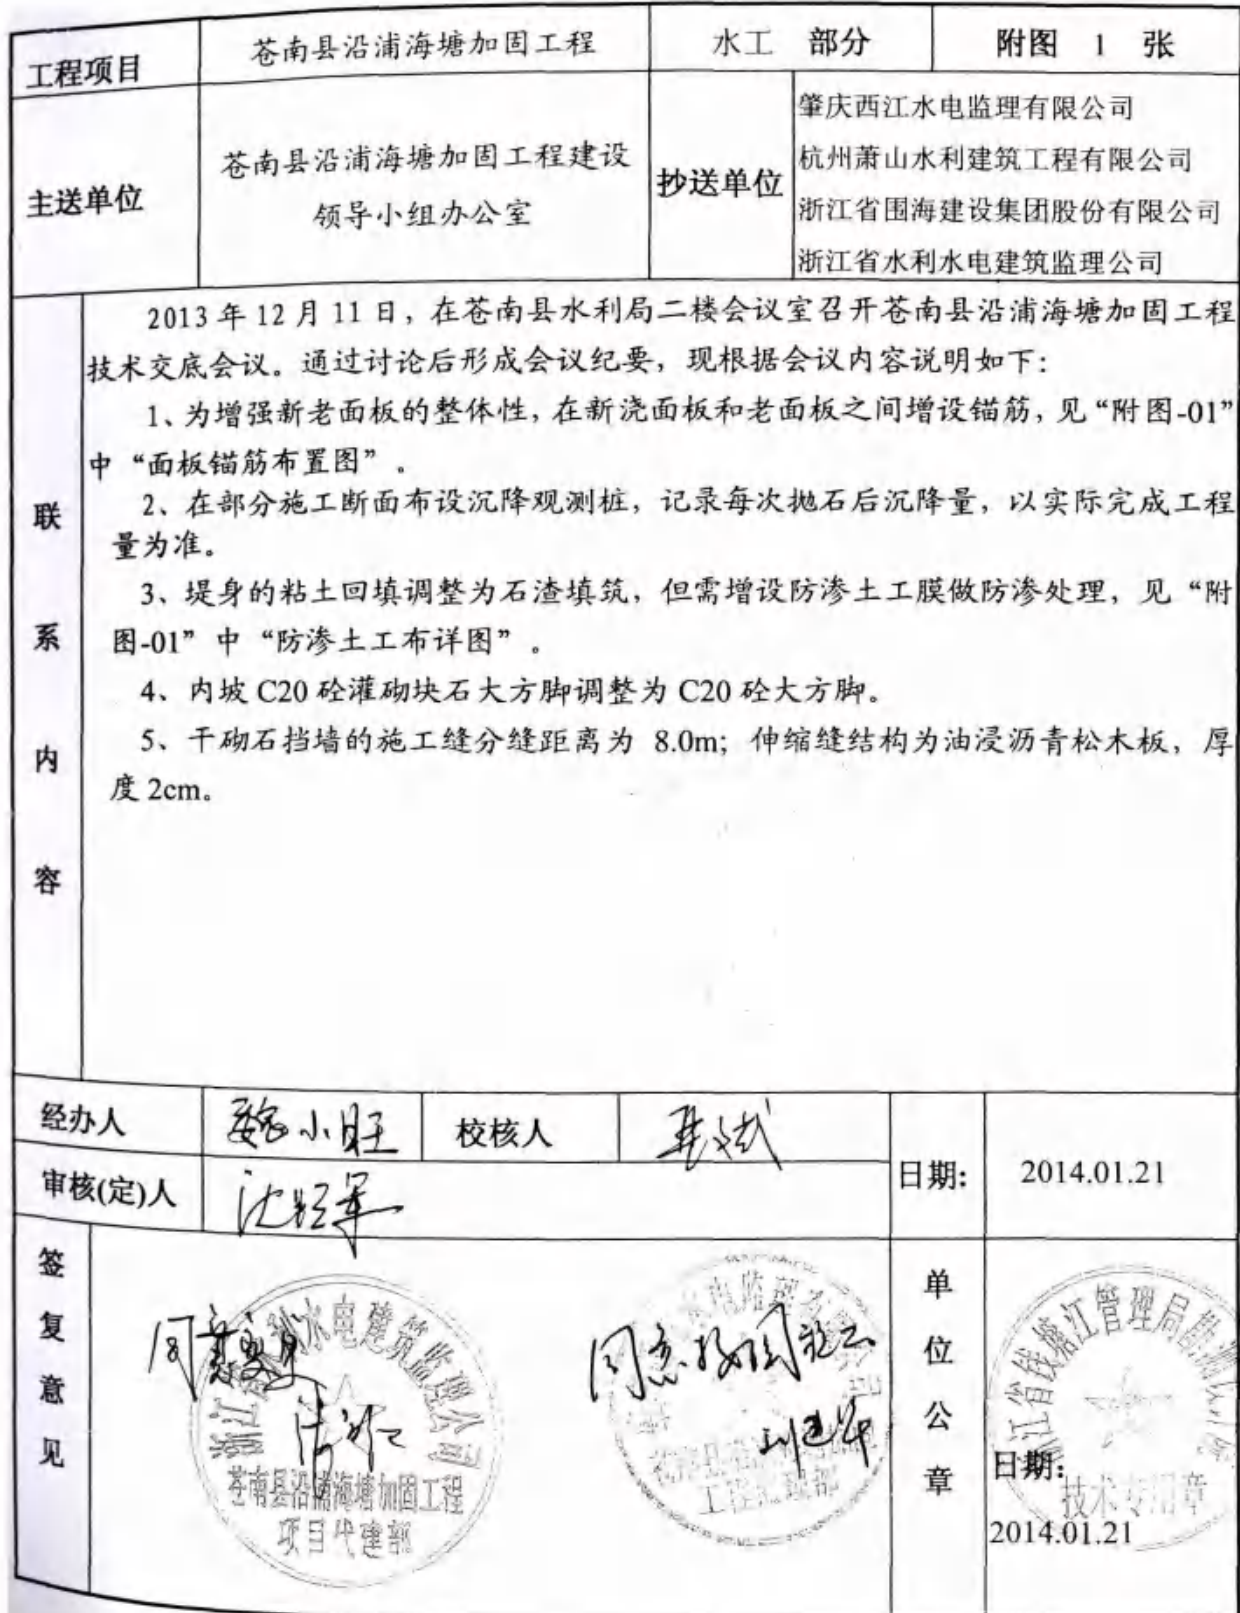 工程项目
苍南县沿浦海塘加固工程
水工 部分
附图 1 张
主送单位
苍南县沿浦海塘加固工程建设
领导小组办公室
抄送单位
肇庆西江水电监理有限公司
杭州萧山水利建筑工程有限公司
浙江省围海建设集团股份有限公司
浙江省水利水电建筑监理公司
联系内容
2013年12月11日，在苍南县水利局二楼会议室召开苍南县沿浦海塘加固工程
技术交底会议。通过讨论后形成会议纪要，现根据会议内容说明如下：
1、为增强新老面板的整体性，在新浇面板和老面板之间增设锚筋，见“附图-01”
中“面板锚筋布置图”。
2、在部分施工断面布设沉降观测桩，记录每次抛石后沉降量，以实际完成工程
量为准。
3、堤身的粘土回填调整为石渣填筑，但需增设防渗土工膜做防渗处理，见“附
图-01”中“防渗土工布详图”。
4、内坡C20砼灌砌块石大方脚调整为C20砼大方脚。
5、干砌石挡墙的施工缝分缝距离为 8.0m；伸缩缝结构为油浸沥青松木板，厚
度2cm。
经办人
魏小旺
校核人
审核(定)人
日期：
2014.01.21
签复意见
同意
浙江省水利水电建筑监理公司
苍南县沿浦海塘加固工程
项目代建部
同意
水电监理有限公司
工程监理部
单位公章
浙江省钱塘江管理局勘测设计院
技术专用章
日期：
2014.01.21